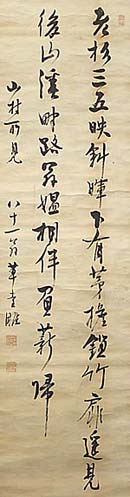 老杉三五映斜暉下有茅檐鎖竹扉遥見
後山潅畔路翁媼相伴負薪帰
山村所見 八十一翁華堂